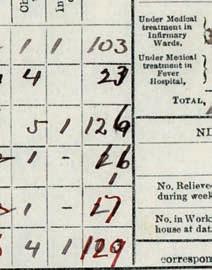 Under Medical
treatment in
Infirmary
Wards,
Under Medical
treatment in
Fever
Hospital,
TOTAL,
1 1 103
4 23
5 1 126
1 - 26
1
1 - 17
4 1 129
NI
No. Relieve
during week
No. in Work
house at dat
correspon